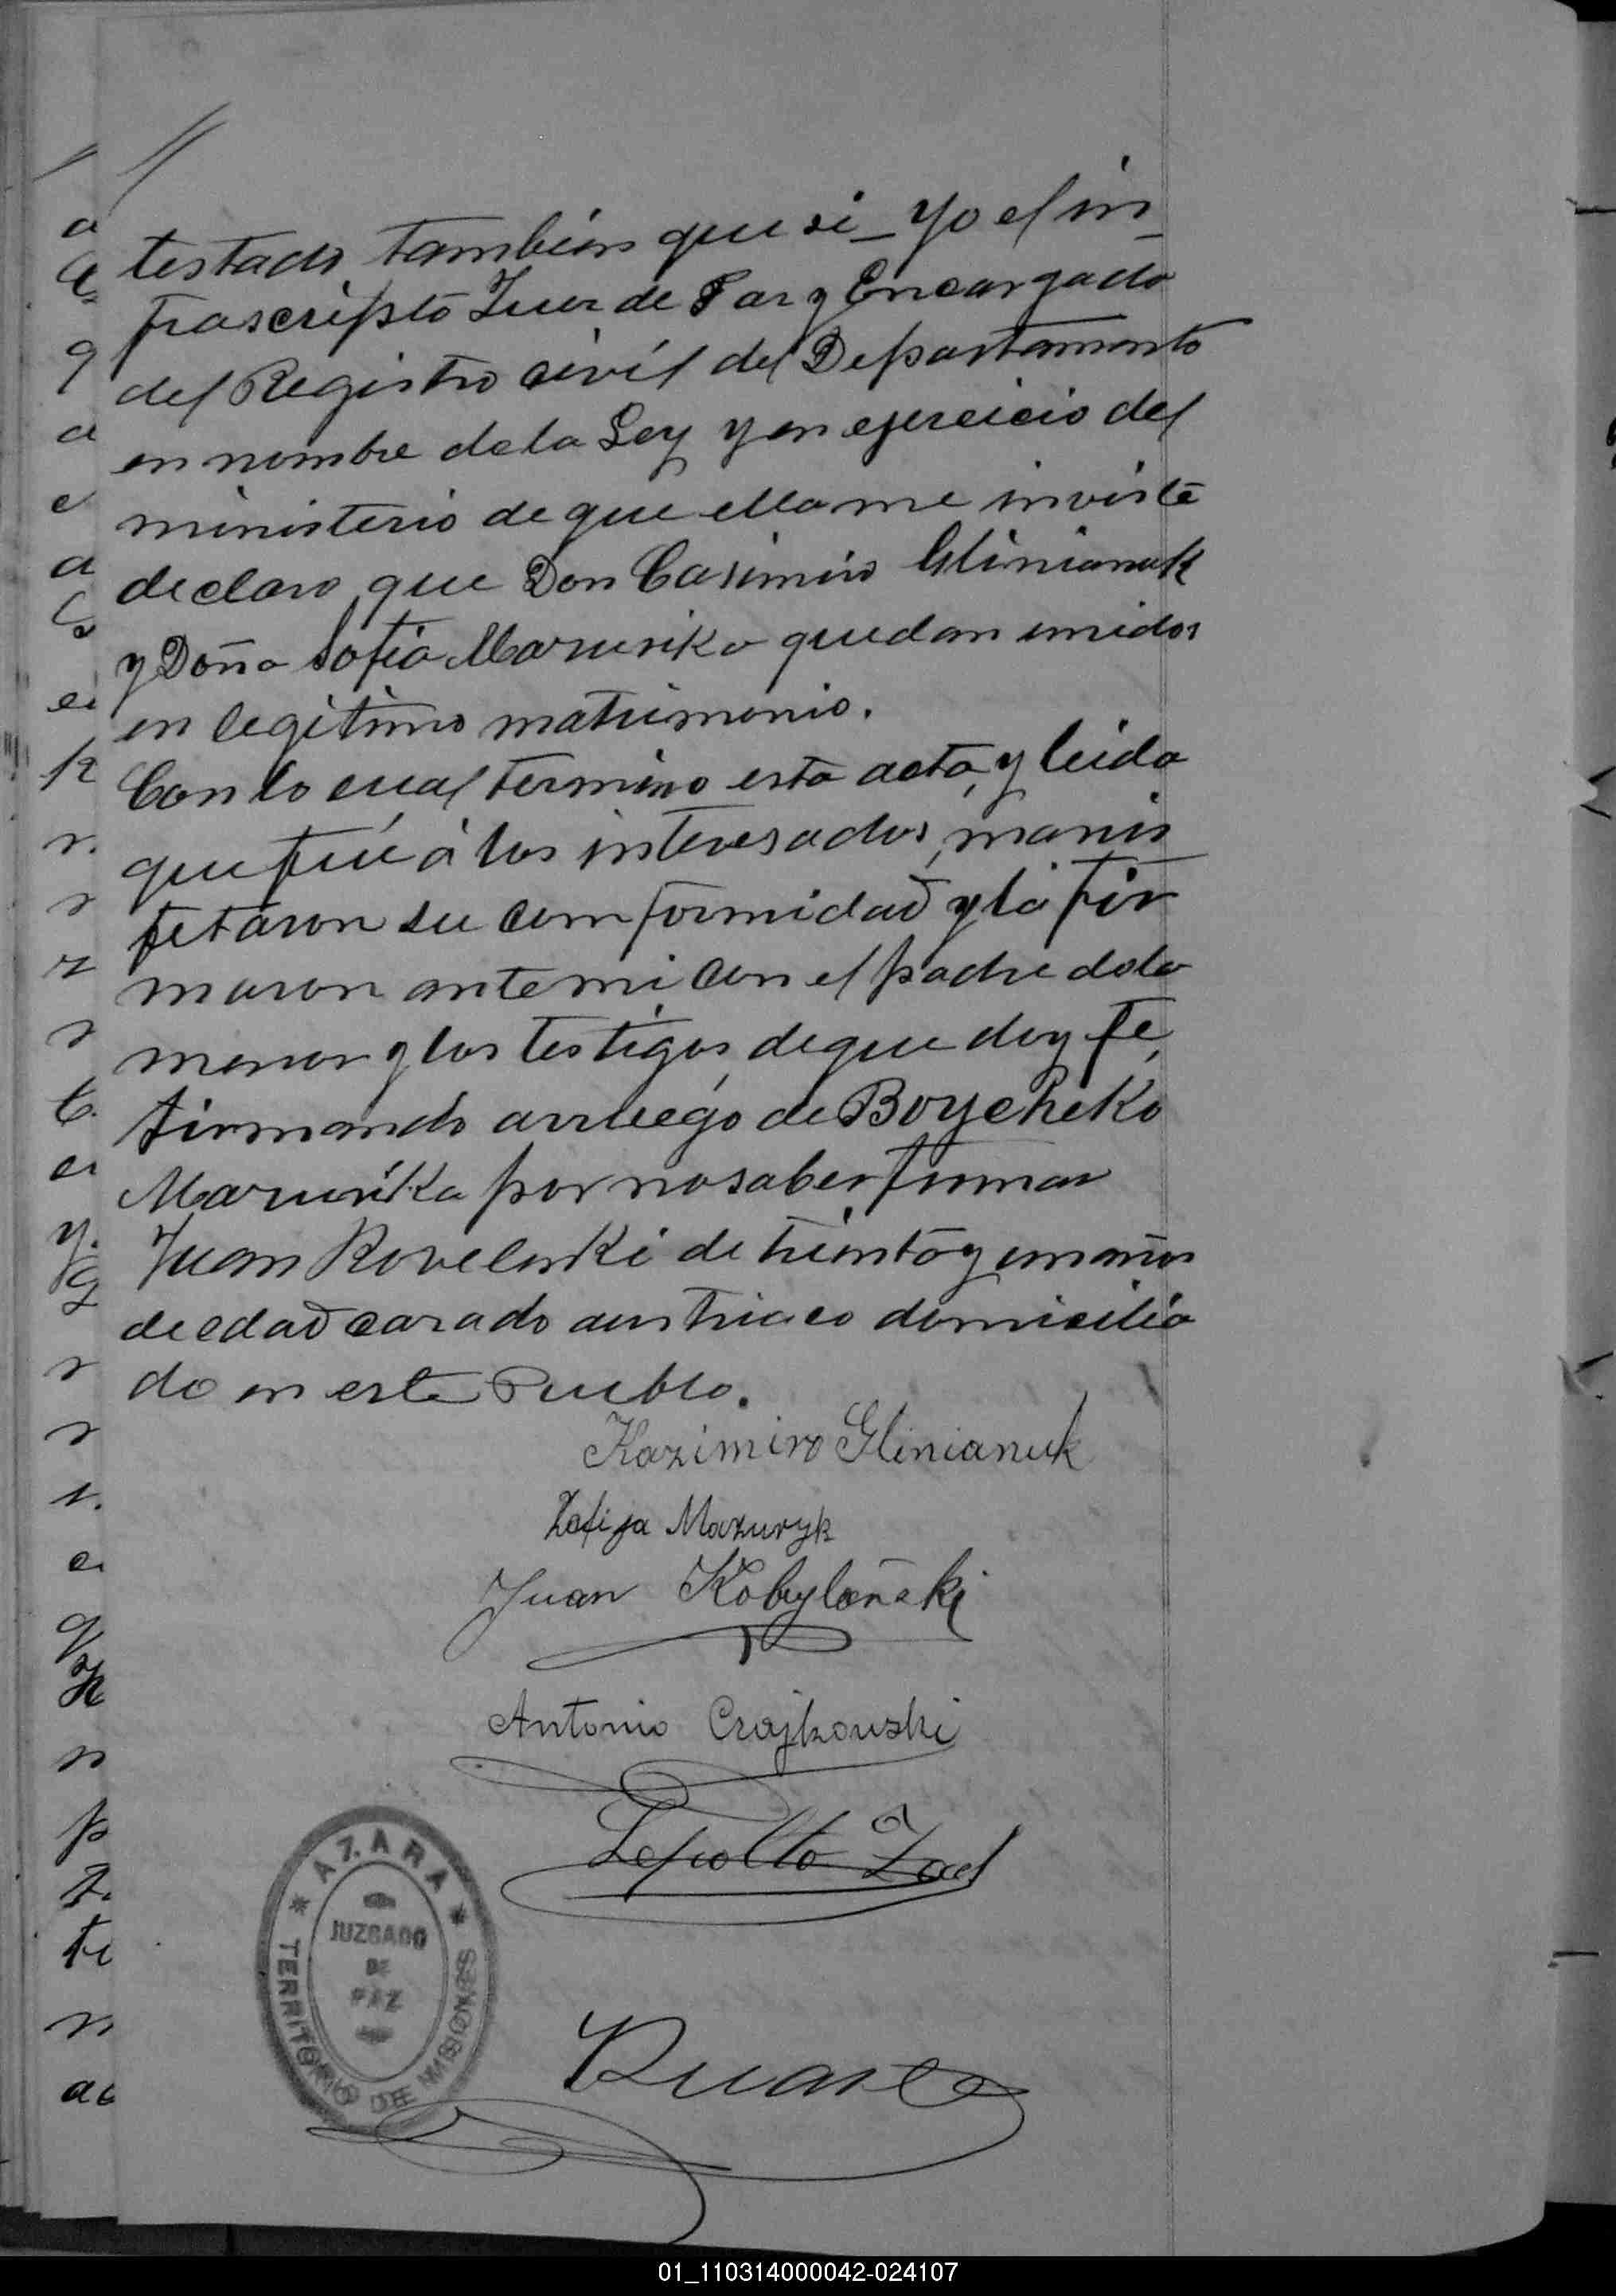 testado tambien que si_ Yo el in_
frascripto Juez de Paz y Encargado
del Registro civil del Departamento
en nombre de la Ley y en ejercicio del
ministerio de que ella me inviste
declaro que Don Casimiro Glinianuk
y Doña Sofia Marusika quedan unidos
en legitimo matrimonio.
Con lo cual termino esta acta, y leida
que fué á los interesados, manis
fetaron su comformidad y la fir
maron ante mi con el padre de la
menor y los testigos, de que doy fe,
firmando arruego de Boycheko
Marusika por no saber firmar
Juan Rovelenki de trienta y un años
de edad casado austriaco domicilia
do en este Pueblo.
Kazimiro Glinianuk
Zofija Mazuryk
Juan Kobylański
Antonio Czajkowski
AZARA
JUZGADO
DE
PAZ
TERRITORIO DE MISIONES
01_110314000042-024107